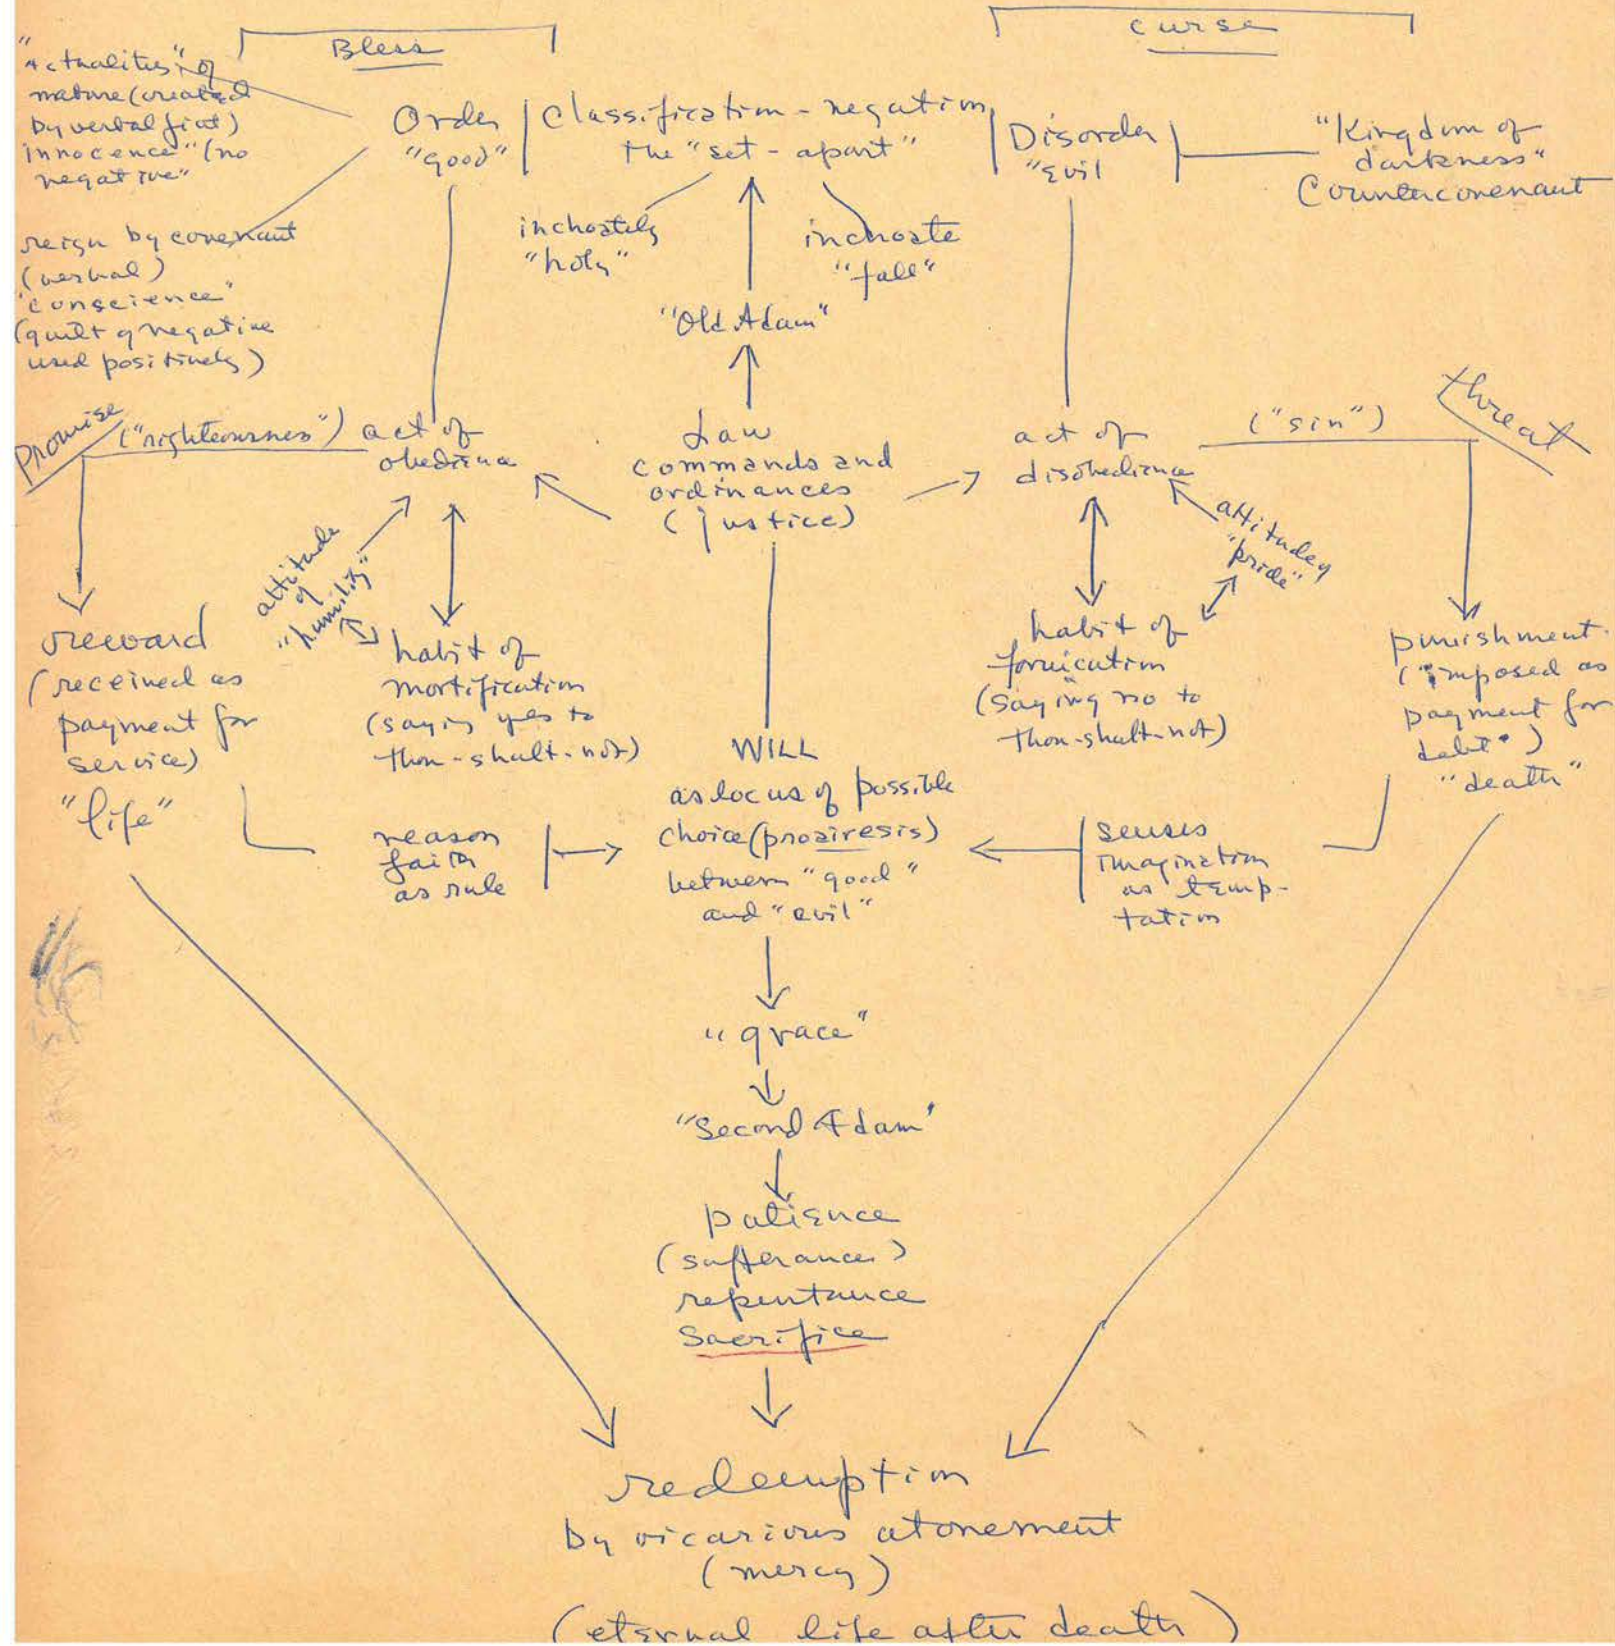 Bless
curse
"Actualities" of
nature (created
by verbal fiat)
innocence" (no
negative"
Order
"good"
Classification - negation
the "set-apart"
Disorder
"Evil
"Kingdom of
darkness"
Countercovenant
reign by covenant
(verbal)
"conscience"
(guilt of negative
used positively)
inchoately
"holy"
inchoate
"fall"
"Old Adam"
Promise
("righteousness")
act of
obedience
Law
commands and
ordinances
(justice)
act of
disobedience
("sin")
threat
attitude
of
"humility"
attitude of
"pride"
reward
(received as
payment for
service)
"life"
habit of
mortification
(saying yes to
thou-shalt-not)
habit of
fornication
(saying no to
thou-shalt-not)
punishment
(imposed as
payment for
debt")
"death"
WILL
as locus of possible
choice (proairesis)
between "good"
and "evil"
reason
faith
as rule
senses
imagination
as temp-
tation
"grace"
"Second Adam'
patience
(sufferance)
repentance
Sacrifice
redemption
by vicarious atonement
(mercy)
(eternal life after death)